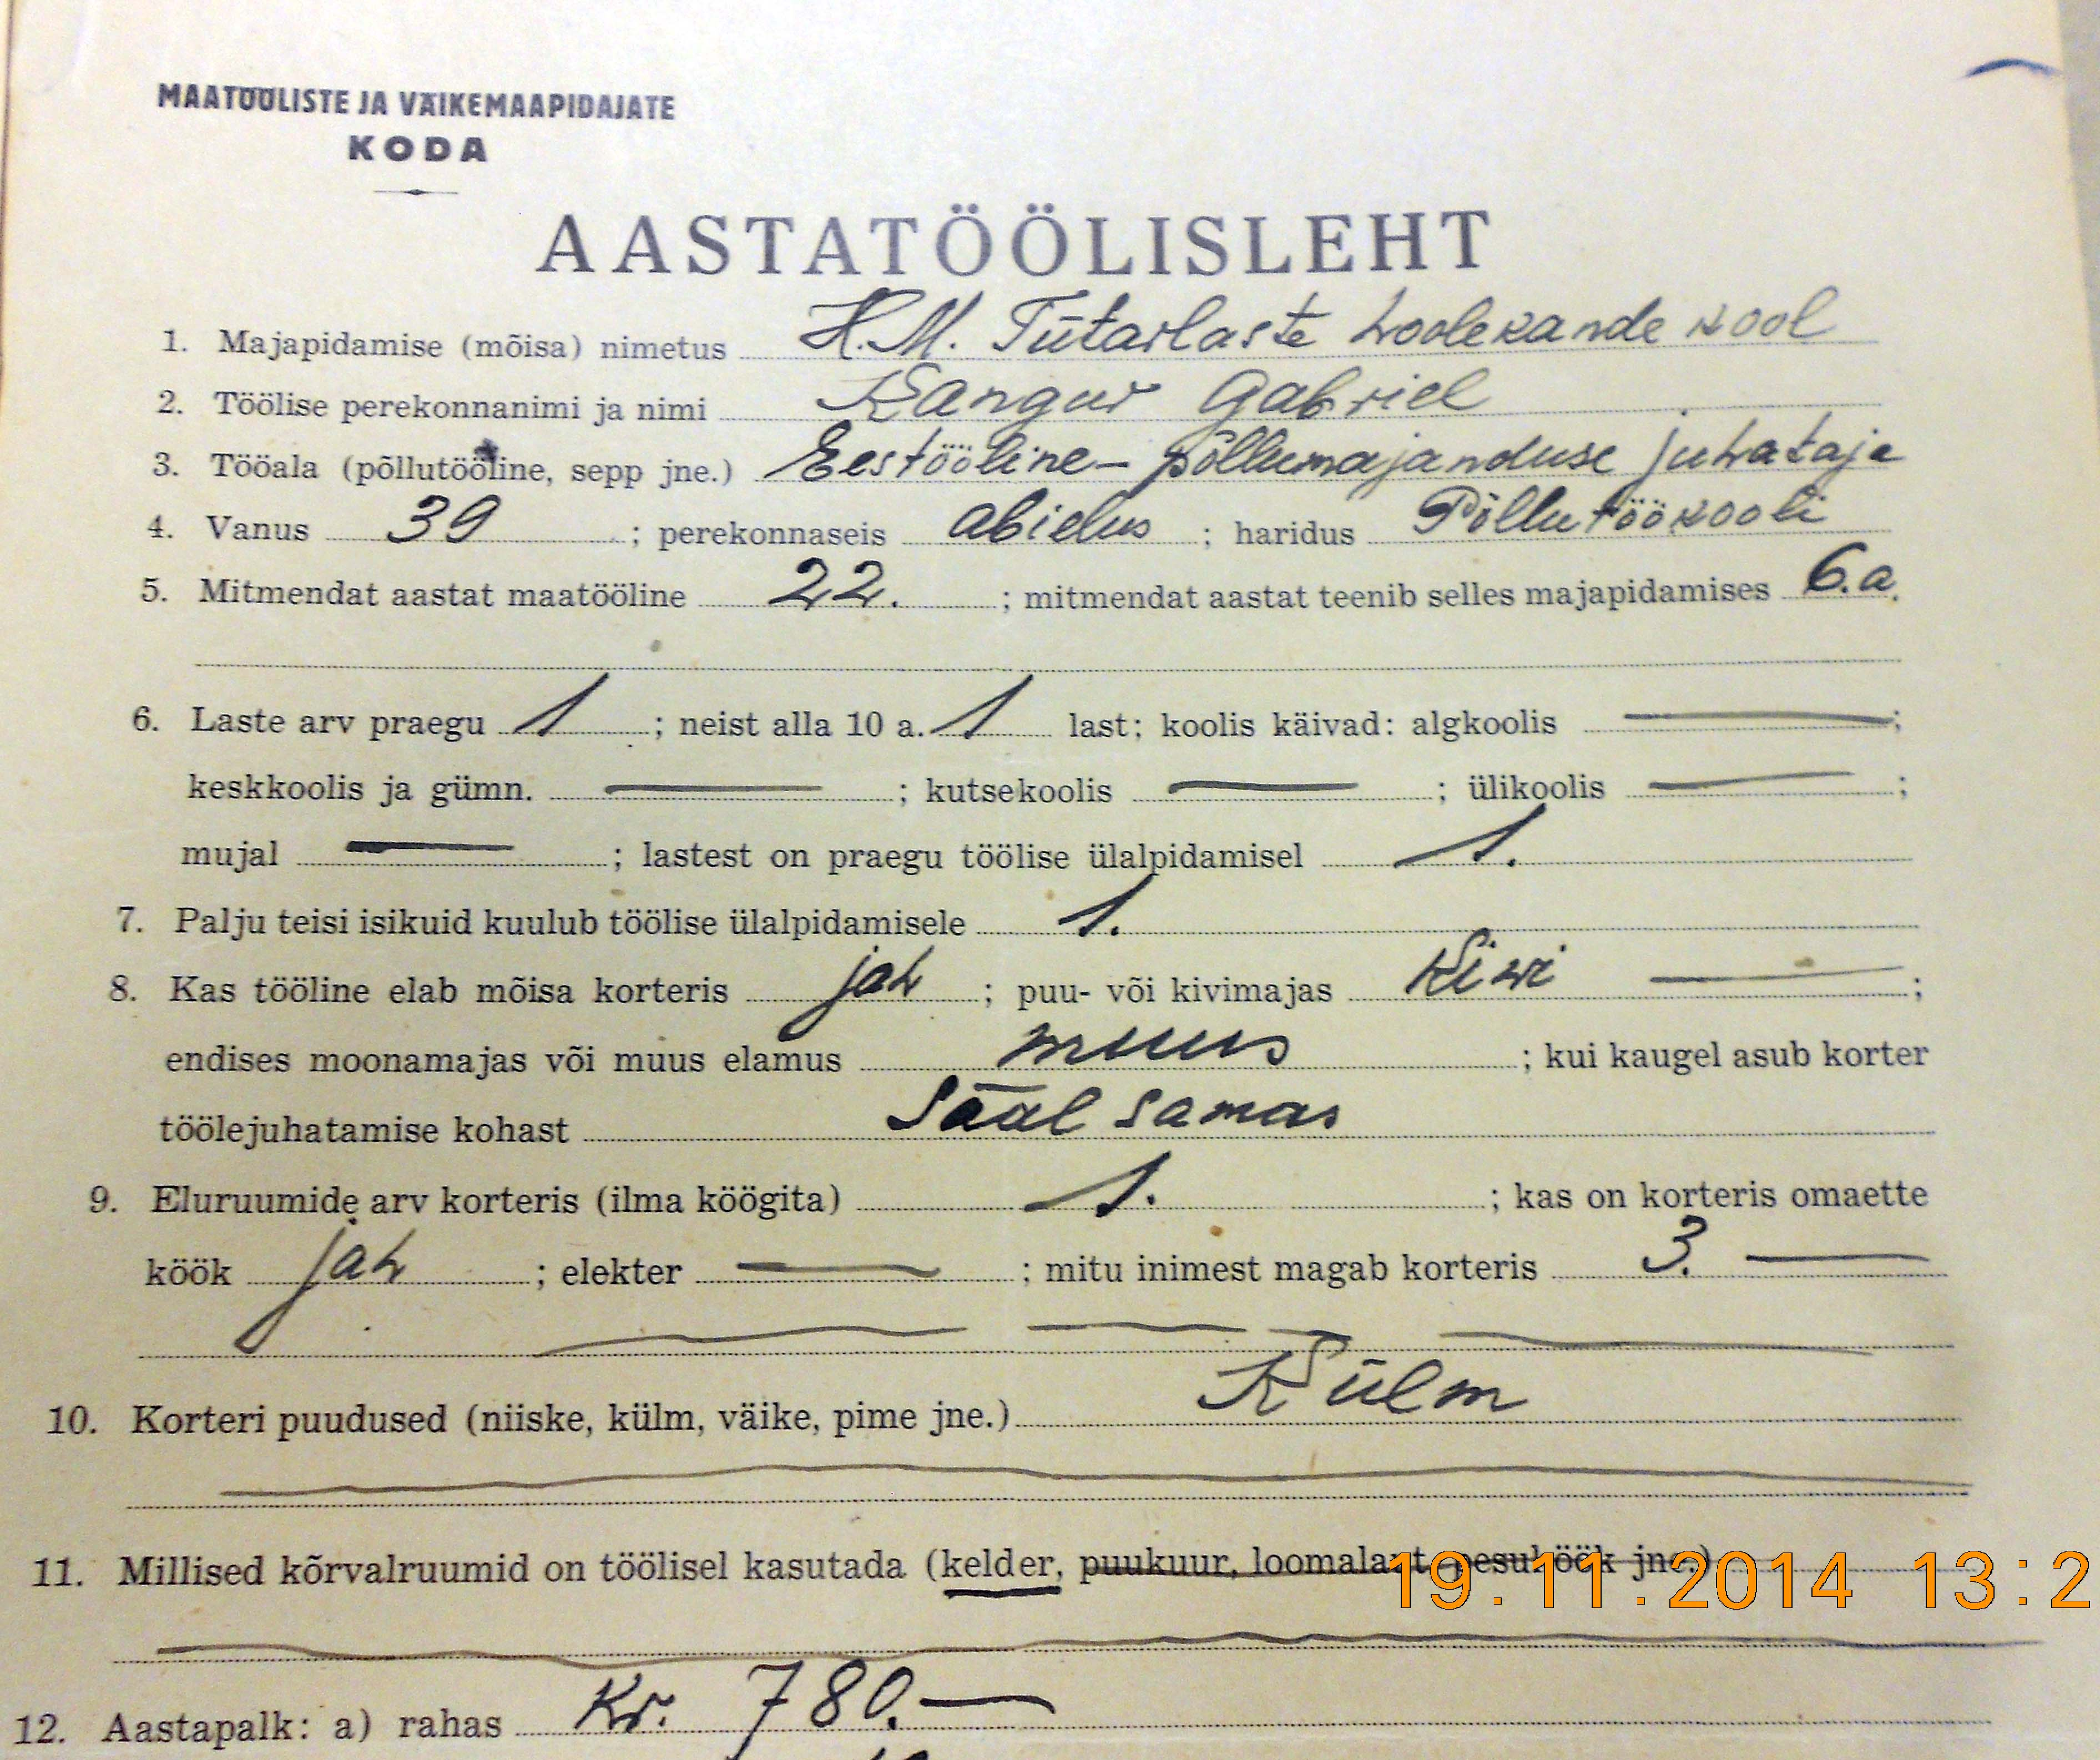 MAATÖÖLISTE JA VÄIKEMAAPIDAJATE
KODA
AASTATÖÖLISLEHT
1. Majapidamise (mõisa) nimetus H.M. Tütarlaste hoolekande kool
2. Töölise perekonnanimi ja nimi Kangur Gabriel
3. Tööala (põllutööline, sepp jne.) Eestööline – põllumajanduse juhataja
4. Vanus 39 ; perekonnaseis abielus ; haridus Põllutöökooli
5. Mitmendat aastat maatööline 22. ; mitmendat aastat teenib selles majapidamises 6.a.
6. Laste arv praegu 1 ; neist alla 10 a. 1 last; koolis käivad: algkoolis — ;
keskkoolis ja gümn. — ; kutsekoolis — ; ülikoolis — ;
mujal — ; lastest on praegu töölise ülalpidamisel 1.
7. Palju teisi isikuid kuulub töölise ülalpidamisele 1.
8. Kas tööline elab mõisa korteris jah ; puu- või kivimajas Kiwi — ;
endises moonamajas või muus elamus muus ; kui kaugel asub korter
töölejuhatamise kohast Sääl samas
9. Eluruumide arv korteris (ilma köögita) 1. ; kas on korteris omaette
köök jah ; elekter — ; mitu inimest magab korteris 3. —
10. Korteri puudused (niiske, külm, väike, pime jne.) Külm
11. Millised kõrvalruumid on töölisel kasutada (kelder, puukuur, loomalaut, pesuköök jne.)
19.11.2014 13:2
12. Aastapalk: a) rahas Kr. 780.—